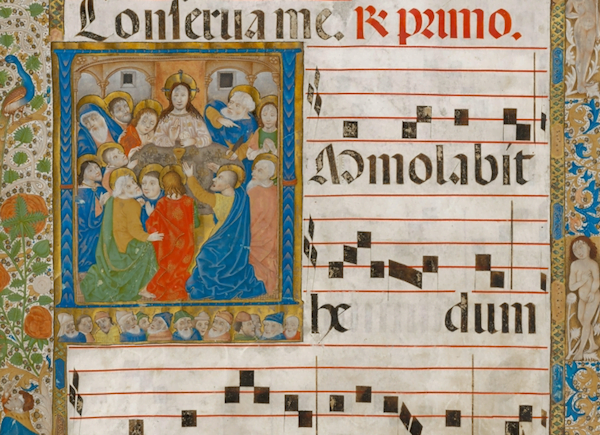 Conserua me. ℟ primo.
Mmolabit
he dum